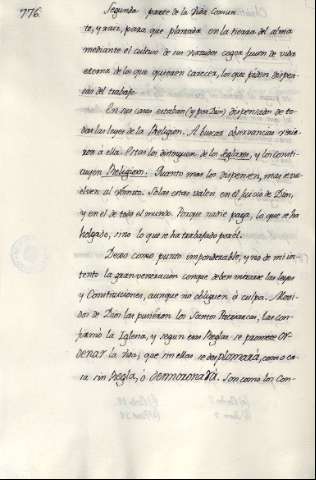 776.
Segunda parte de la Vida Comun
te, y raiz, para que plantada en la tierra del alma
mediante el cultivo de sus virtudes cogan frutos de vida
eterna de los que quieren carecer, los que piden dispen
sas del trabajo.
En sus casas estaban (y por Dios) dispensados de to
das las leyes de la Religion. A buscar observancias vinie
ron à ella. Estas los distinguen de los seglares, y los consti
tuyen Religiosos. Quanto mas los dispensen, mas se vu
elven al Vomito. Solas estas valen en el Juicio de Dios,
y en el de todo el mundo. Porque nadie paga, lo que se ha
holgado, sino lo que se ha trabajado por èl.
Dexo como punto imponderable, y no de mi in
tento la gran veneracion conque deben mirarse las leyes
y Constituciones, aunque no obliguen à culpa. Movi
dos de Dios las pusieron los Santos Patriarcas, las con
firmò la Iglesia, y segun esas Reglas se promete or
denar la vida; que sin ellas se desplomarà, como ca
sa sin Regla, ò desmoronada. Son como los Con-